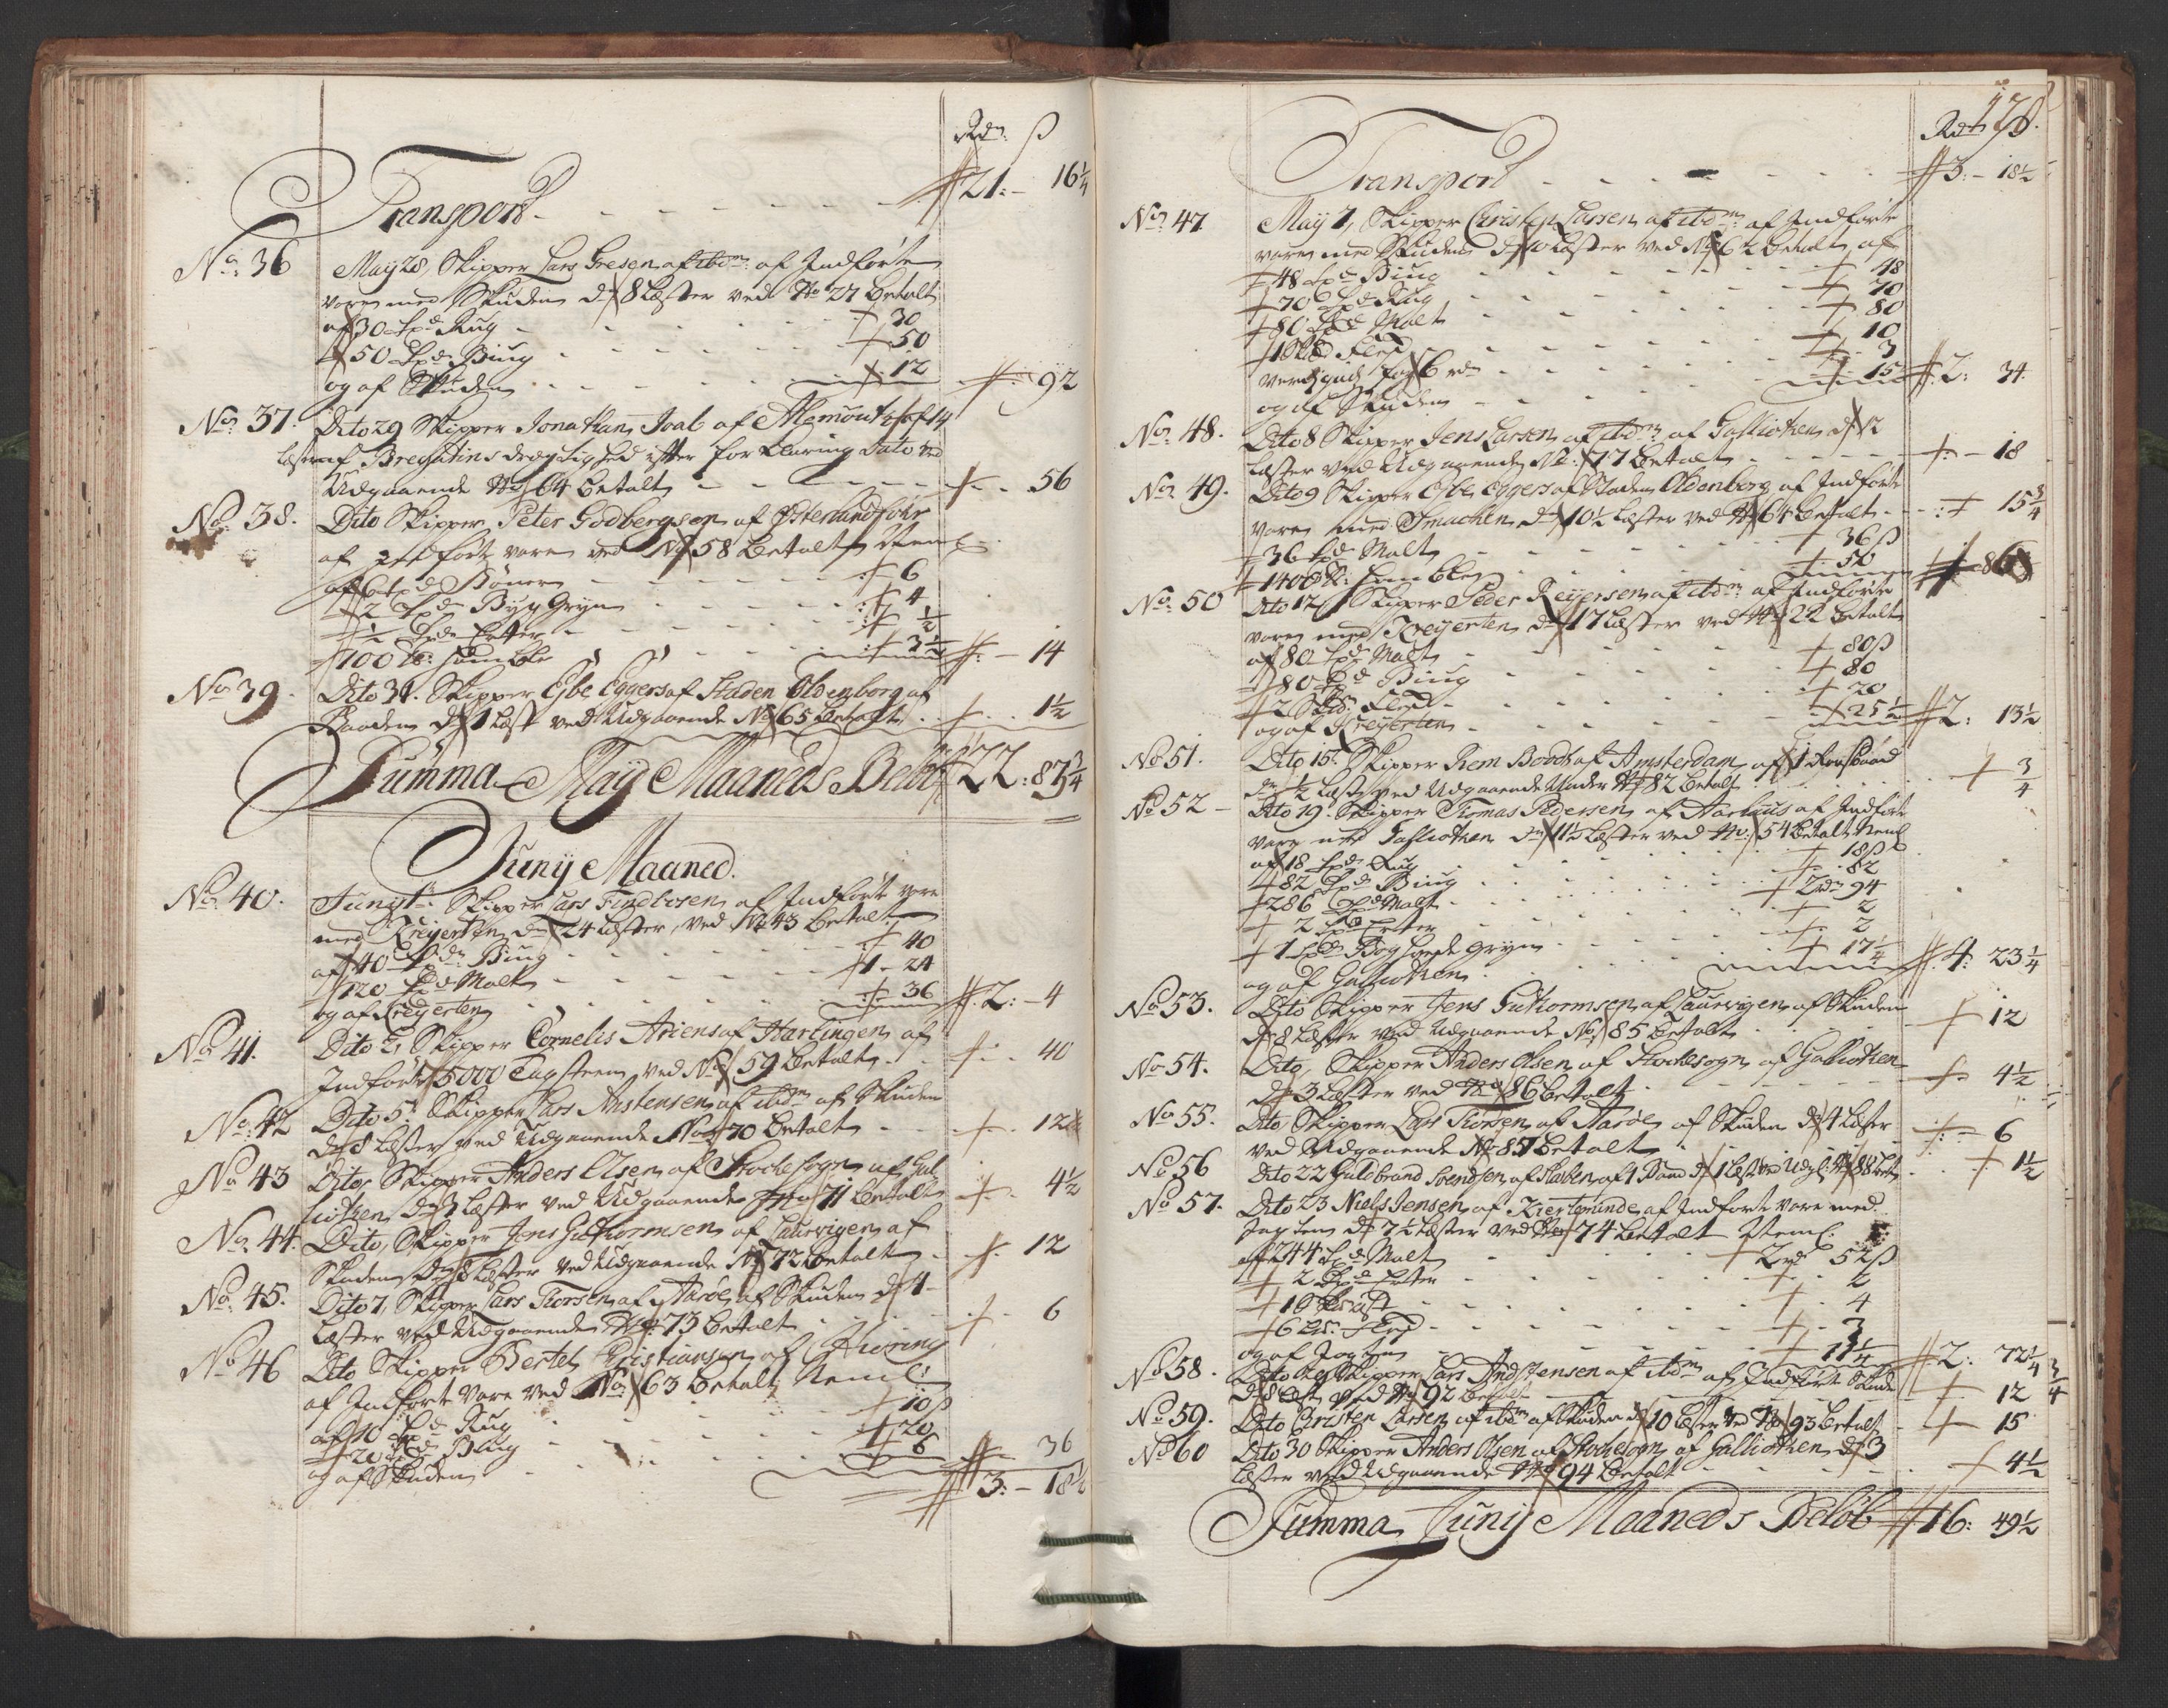 Rdr: ß
Transport - - - - - - 21: - 16 1/4
No: 36 Maij 28, Skipper Lars Gresen af ibdm: af Indførte
vare med Skuden dr 8 Læster ved No 27 betalt
af 30 Tpd: Rug - - - - 30
50 Tpd: Biug - - - - 50
og af Skuden - - - - 12 - 92
No: 37. Dito 29 Skipper Jonathan Joab af 14
Læster af Bregatins drægtighed efter forklaring dato ved
Udgaaende No 64 betalt - - - - 56
No: 38. Dito Skipper Peter Godbergsen af Østerlandføhr
af indførte vare ved No 58 betalt Neml:
af 6 Tpd: Bönner - - - - 6
2 Tpd: Byg Gryn - - - - 4
1/2 Tpd: Erter - - - - 1/2
100 lb: - - - - 3 1/2 - 14
No 39. Dito 31. Skipper Egbe Eggers af Staden Oldenborg af
Baaden dr 1 Læst ved Udgaaende No 65 betalt - - 1 1/2
Summa Maij Maaneds Beløb 22: 83 3/4
Junij Maaned.
No: 40. Junij 1te Skipper Lars Findbosen af Indført vare
med Kreyerten dr 24 Læster, ved No 43 betalt
af 40 Tpdr: Biug - - - 40
120 Tpd: Malt - - - 1 - 24
og af Kreyerten - - - 36 2: - 4
No 41. Dito 2, Skipper Cornelis Ariens af Harlingen af
Indførte 5000 Tagsteen ved No 59 betalt - - 40
No: 42 Dito 5. Skipper Lars Anstensen af ibdm af Skuden
dr 8 Læster ved Udgaaende No 70 betalt - - 12
No 43 Dito, Skipper Anders Olsen af Stochesogn af Gal
liothen dr 3 Læster ved Udgaaende No 71 betalt - 4 1/2
No 44. Dito, Skipper Jens Guthormsen af Laurvigen af
Skuden dr 8 Læster ved Udgaaende No 72 betalt - 12
No: 45. Dito 7, Skipper Lars Thorsen af Aarøe af Skuden dr 4
Læster ved Udgaaende No 73 betalt - - 6
No 46 Dito Skipper Bertel Christiansen af Hiöring
af Indført vare ved No: 63 betalt Neml:
af 10 Tpd: Rug - - - 10 ß
20 Tpd: Biug - - - 20
og af Skuden - - - 6 - 36
3: - 18 1/2
178.
Rdr ß
Transport - - - - - - 3: - 18 1/2
No: 47 Maij 7, Skipper Christen Larsen af ibdm: af Indførte
vare med Skuden dr 10 Læster ved No 62 betalt af
48 Tpd: Biug - - - 48
70 Tpd: Rug - - - 70
80 Tpd: Malt - - - 80
1 Skd Flesk - - - 10
for 6 rdr - - - 3
og af Skuden - - - 15 2: 34.
No: 48. Dito 8 Skipper Jens Larsen af ibdm af Galliothen dr 12
Læster ved Udgaaende No: 77 betalt - - - 18
No: 49. Dito 9 Skipper Egbe Eggers af Staden Oldenborg af Indførte
vare med Smachen dr 10 1/2 Læster ved No 64 betalt - 15 3/4
36 Tpd: Malt - - - 36 ß
1400 - - - 50 - 86
No: 50 Dito 12, Skipper Peder Reyersen af ibdm af Indførte
vare med Kreyerten dr 17 Læster ved No 22 betalt
af 80 Tpd: Malt - - - 80 ß
80 Tpd: Biug - - - 80
2 Skd: Flesk - - - 20
og af Kreyerten - - - 25 1/2 2: 13 1/2
No 51. Dito 15. Skipper Rem Booch af Amsterdam af 1
dr 1/2 Læst ved Udgaaende under No 82 betalt - - 3/4
No 52 - Dito 19. Skipper Thomas Pedersen af Aarhuus af Indførte
vare med Galliothen dr 11 1/2 Læster ved No: 54 betalt Neml
af 18 Tpd: Rug - - - 18 ß
82 Tpd: Biug - - - 82
286 Tpd Malt - - - 2 rdr 94
2 Tpd Erter - - - 2
1 Tpd: Boghvede Gryn - - - 2
og af Galliothen - - - 17 1/4 4: 23 1/4
No 53. Dito Skipper Jens Guthormsen af Laurvigen af Skuden
dr 8 Læster ved Udgaaende No: 85 betalt - - 12
No 54. Dito, Skipper Anders Olsen af Stochesogn af Galliothen
dr 3 Læster ved No 86 betalt - - 4 1/2
No 55. Dito Skipper Lars Thorsen af Aarøe af Skuden dr 4 Læster
ved Udgaaende No 87 betalt - - 6
No 56 Dito 22 Guldbrand Svendsen af af 1 Baad dr 1 Læst ved Udg: No 88 bet - 1 1/2
No 57. Dito 23 Niels Jensen af Kiertminde af Indførte vare med
Jagten dr 7 1/2 Læster ved No 74 betalt Neml:
af 244 Tpd: Malt - - - 2 rdr 52 ß
2 Tpd: Erter - - - 2
1 - - - 4
6 Flesk - - - 3
og af Jagten - - - 11 1/4 2: 72 1/4
No 58. Dito Skipper Lars Andstensen af ibdm af Indført Skude
dr 8 Læst ved No 92 betalt - - 12 3/4
No 59. Dito Christen Larsen af ibdm af Skuden dr 10 Læster ved No 93 betalt - 15
No 60 Dito 30 Skipper Anders Olsen af Stochesogn af Galliothen dr 3
Læster ved Udgaaende No 94 betalt - - 4 1/2
Summa Junij Maaneds Beløb 16: 49 1/2